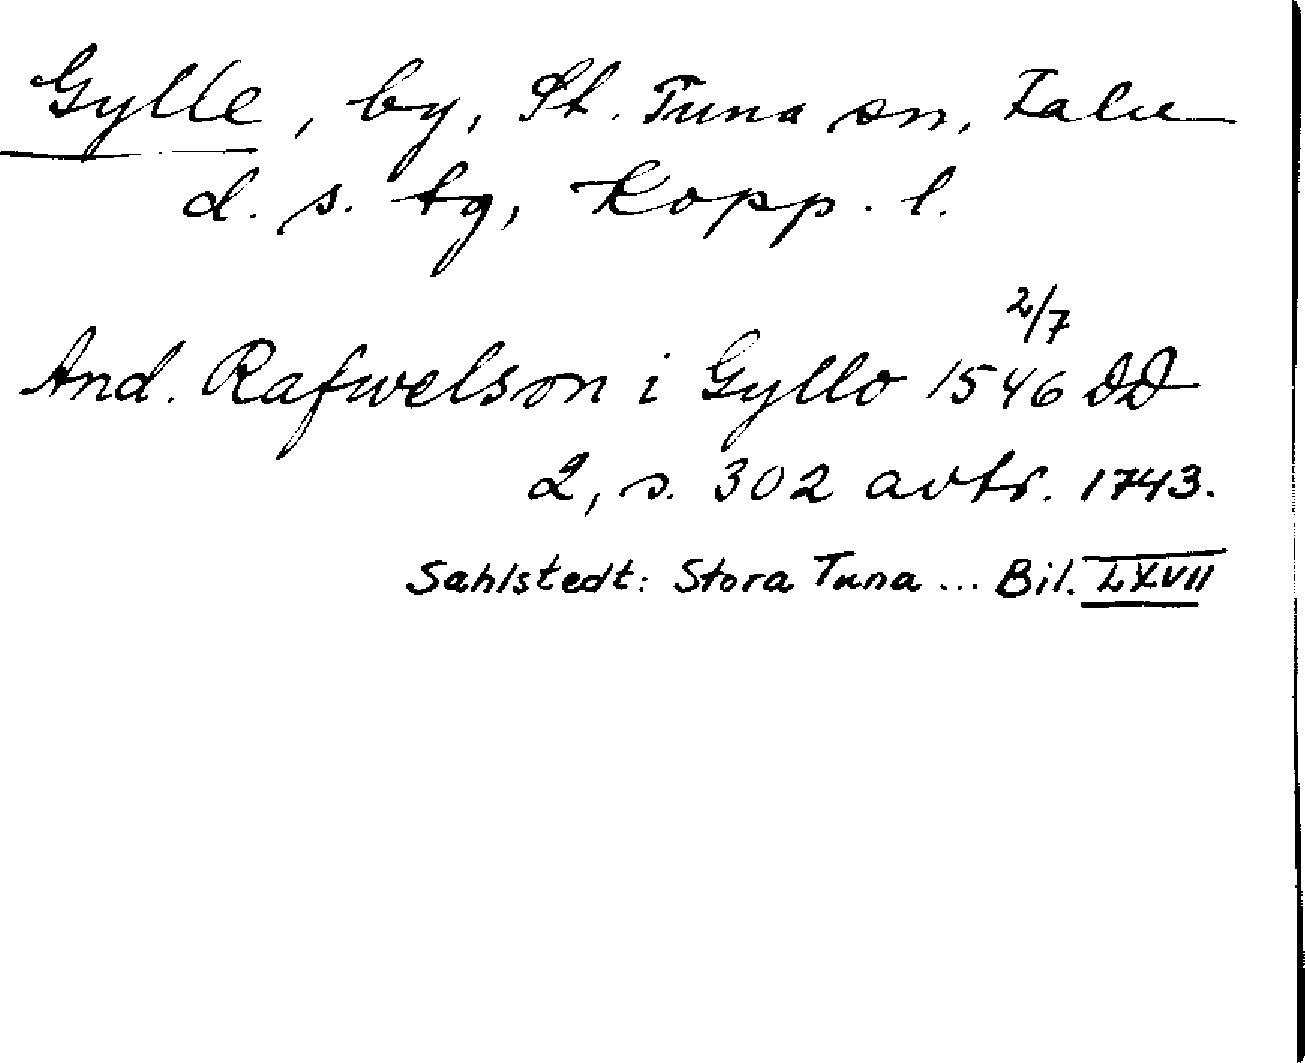 Gylle, by, St. Tuna sn, Falu
d. s. tg, Kopp. l.
2/7
And. Rafwelson i Gyllo 1546 DD
2, s. 302 avtr. 1743.
Sahlstedt: Stora Tuna ... Bil. LXVII